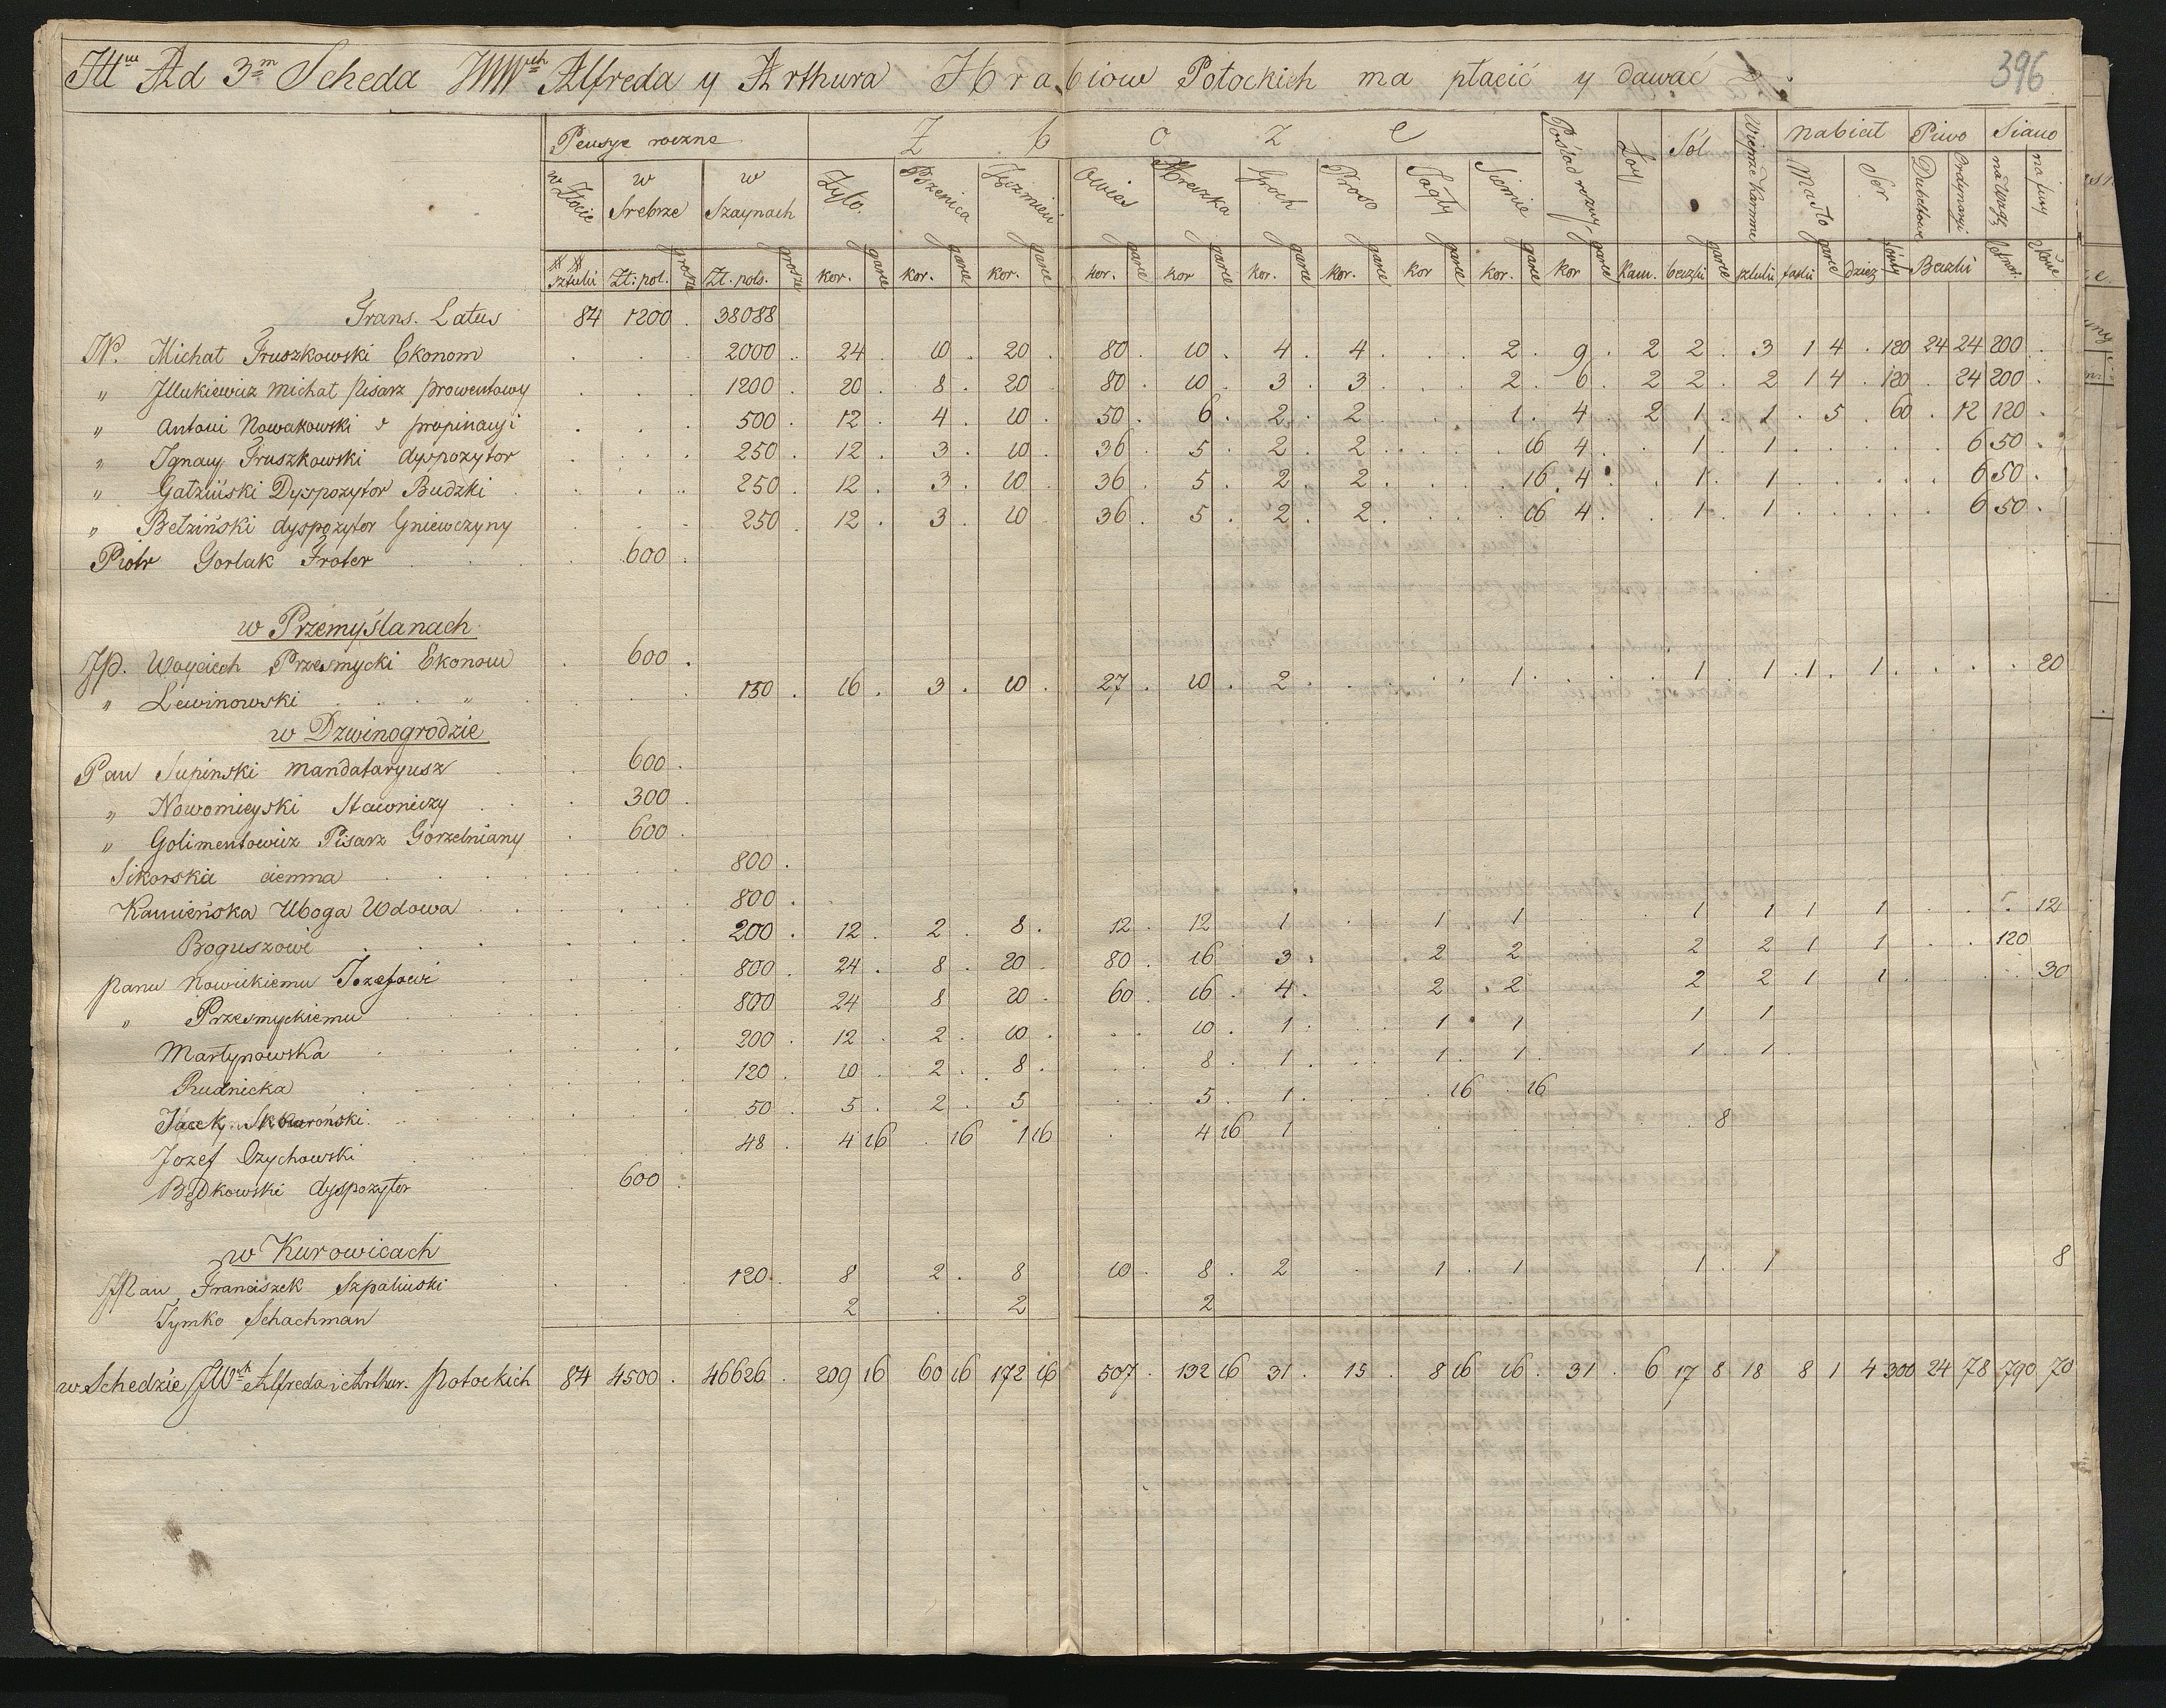 Ad 3m Scheda JWWch Alfreda y Arthura Hrabiow Potockich ma płacić y dawać 396
Pensye roczne Z b o z e Pośład rożny Łoy Sól Wieprze Karmne nabiał Piwo Siano
w Złocie w Srebrze w Szaynach Żyto. Pszenica Jęczmień Owies Hreczka Groch Proso Jagły Siemie Masło Ser Dubeltowe Ordynaryi na Wozy na fury
sztuki Zł: pol. grosze Zł. pols. grosze kor. garce kor. garce kor. garce kor. garce kor garce kor. garce kor. garce kor garce kor. garce kor garce Kam. beczki garce sztuki faski garce dzież Beczki
Trans. Latus 84 1200 . 38088
W. Michał Fruszkowski Ekonom 2000 . 24 . 10 . 20 . 80 . 10 . 4 . 4 . 2 . 9 . 2 2 . 3 1 4 . 120 24 24 200
" Illukiewicz Michał Pisarz prowentowy 1200 . 20 . 8 . 20 80 . 10 . 3 . 3 . 2 . 6 . 2 2 . 2 1 4 . 120 . 24 200 .
" Antoni Nowakowski propinacyi 500 . 12 . 4 . 10 . 50 . 6 . 2 . 2 . 1 . 4 . 2 1 . 1 . 5 . 60 . 12 120 .
" Ignacy Fruszkowski dyspozytor 250 . 12 . 3 . 10 . 36 . 5 . 2 . 2 . 16 4 . 1 . 1 . 6 50 .
" Gałziński Dyspozytor Budzki 250 . 12 . 3 . 10 . 36 . 5 . 2 . 2 . 16 . 4 . 1 . 1 . 6 50 .
" Bełziński dyspozytor Gniewczyny 250 . 12 . 3 . 10 36 . 5 . 2 . 2 . 16 4 . 1 . 1 . 6 50 .
Piotr Gorlak Froter 600 .
w Przemyślanach
JP. Woyciech Przesmycki Ekonom 600 .
" Lewinowski " 150 . 16 . 3 . 10 . 27 . 10 . 2 . 1 . 1 . 1 . 1 . 1 . 20
w Dzwinogrodzie
Pan Supinski Mandataryusz 600 .
" Nowomieyski Stawniczy 300 .
" Golimentowicz Pisarz Gorzelniany 600 .
Sikorska ciemna 800 .
Kamieńska Uboga Wdowa 800 .
Boguszowi 200 . 12 . 2 . 8 . 12 . 12 . 1 . 1 . 1 1 . 1 1 1 . 12
Panu Nowickiemu Jozefowi 800 . 24 . 8 . 20 80 . 16 . 3 . 2 . 2 2 . 2 1 1 . 120
" Przesmyckiemu 800 24 8 20 . 60 . 16 . 4 . 2 . 2 2 . 2 1 1 . 30
Martynowska 200 . 12 . 2 . 10 . 10 . 1 . 1 . 1 1 . 1
Rudnicka 120 . 10 . 2 . 8 . 8 . 1 . 1 . 1 . 1 . 1
Jacek Skowroński . 50 . 5 . 2 . 5 5 . 1 . 16 . 16
Jozef Czychowski 48 . 4 16 . 16 1 16 4 16 1 8
Bądkowski dyspozyter 600 .
w Kurowicach
JPan Franciszek Szpaliński 120 . 8 2 . 8 10 . 8 . 2 . 1 . 1 . 1 . 1 8
Tymko Schachman 2 . 2 2
w Schedzie JWch Alfreda i Arthur. Potockich 84 4500 . 46626 . 209 16 60 16 172 16 507 . 132 16 31 . 15 . 8 16 16 . 31 . 6 17 8 18 8 1 4 300 24 78 790 70